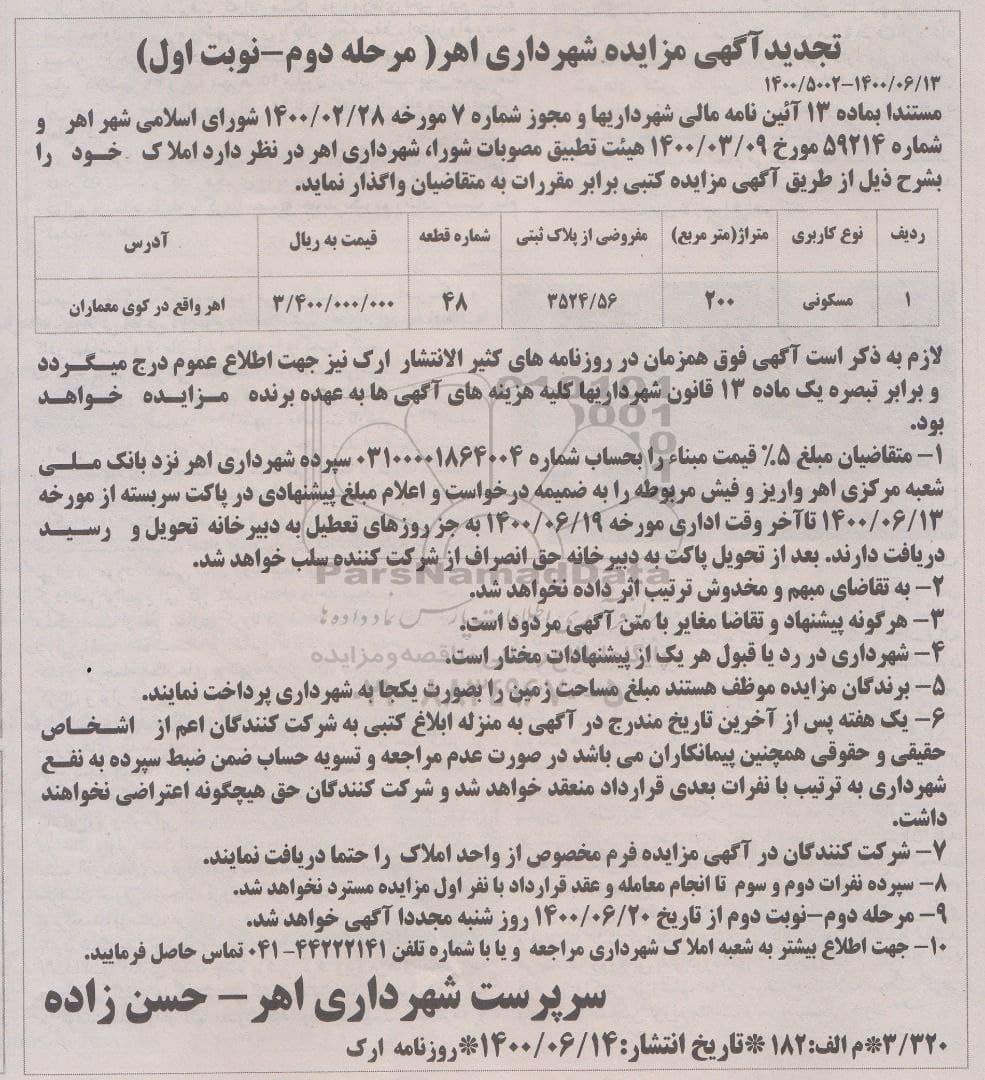 تجدیدآگهی مزایده شهرداری اهر( مرحله دوم-نوبت اول)
۱۴۰۰/۵۰۰۲-۱۴۰۰/۰۶/۱۳
مستندا بماده ۱۳ آئین نامه مالی شهرداریها و مجوز شماره ۷ مورخه ۱۴۰۰/۰۲/۲۸ شورای اسلامی شهر اهر و
شماره ۵۹۲۱۴ مورخ ۱۴۰۰/۰۳/۰۹ هیئت تطبیق مصوبات شورا، شهرداری اهر در نظر دارد املاک خود را
بشرح ذیل از طریق آگهی مزایده کتبی برابر مقررات به متقاضیان واگذار نماید.
ردیف نوع کاربری متراژ(متر مربع) مفروضی از پلاک ثبتی شماره قطعه قیمت به ریال آدرس
۱ مسکونی ۲۰۰ ۳۵۲۴/۵۶ ۴۸ ۳/۴۰۰/۰۰۰/۰۰۰ اهر واقع در کوی معماران
لازم به ذکر است آگهی فوق همزمان در روزنامه های کثیر الانتشار ارک نیز جهت اطلاع عموم درج میگردد
و برابر تبصره یک ماده ۱۳ قانون شهرداریها کلیه هزینه های آگهی ها به عهده برنده مزایده خواهد
بود.
۱- متقاضیان مبلغ ۵٪ قیمت مبناء را بحساب شماره ۰۳۱۰۰۰۰۱۸۶۴۰۰۴ سپرده شهرداری اهر نزد بانک ملی
شعبه مرکزی اهر واریز و فیش مربوطه را به ضمیمه درخواست و اعلام مبلغ پیشنهادی در پاکت سربسته از مورخه
۱۴۰۰/۰۶/۱۳ تاآخر وقت اداری مورخه ۱۴۰۰/۰۶/۱۹ به جز روزهای تعطیل به دبیرخانه تحویل و رسید
دریافت دارند. بعد از تحویل پاکت به دبیرخانه حق انصراف از شرکت کننده سلب خواهد شد.
ParsNamadData
۲- به تقاضای مبهم و مخدوش ترتیب اثر داده نخواهد شد.
۳- هرگونه پیشنهاد و تقاضا مغایر با متن آگهی مردود است.
۴- شهرداری در رد یا قبول هر یک از پیشنهادات مختار است.
۵- برندگان مزایده موظف هستند مبلغ مساحت زمین را بصورت یکجا به شهرداری پرداخت نمایند.
۶- یک هفته پس از آخرین تاریخ مندرج در آگهی به منزله ابلاغ کتبی به شرکت کنندگان اعم از اشخاص
حقیقی و حقوقی همچنین پیمانکاران می باشد در صورت عدم مراجعه و تسویه حساب ضمن ضبط سپرده به نفع
شهرداری به ترتیب با نفرات بعدی قرارداد منعقد خواهد شد و شرکت کنندگان حق هیچگونه اعتراضی نخواهند
داشت.
۷- شرکت کنندگان در آگهی مزایده فرم مخصوص از واحد املاک را حتما دریافت نمایند.
۸- سپرده نفرات دوم و سوم تا انجام معامله و عقد قرارداد با نفر اول مزایده مسترد نخواهد شد.
۹- مرحله دوم-نوبت دوم از تاریخ ۱۴۰۰/۰۶/۲۰ روز شنبه مجددا آگهی خواهد شد.
۱۰- جهت اطلاع بیشتر به شعبه املاک شهرداری مراجعه و یا با شماره تلفن ۴۴۲۲۲۱۴۱-۰۴۱ تماس حاصل فرمایید.
سرپرست شهرداری اهر- حسن زاده
۳/۳۲۰*م الف:۱۸۲ *تاریخ انتشار:۱۴۰۰/۰۶/۱۴*روزنامه ارک